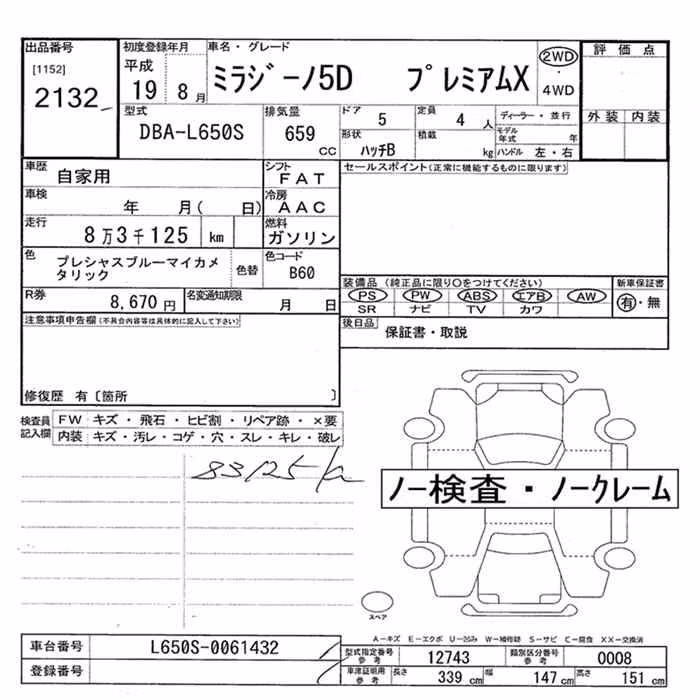 出品番号
[1152]
2132
初度登録年月
平成
19 8月
車名・グレード
ミラジーノ5D プレミアムX
2WD
4WD
評価点
外装 内装
型式
DBA-L650S
排気量
659
CC
ドア 5
定員 4 人
ディーラー・並行
形状
ハッチB
積載 kg
モデル年式 年
ハンドル 左・右
車歴
自家用
シフト
FAT
セールスポイント(正常に機能するものに限ります)
車検
年 月( 日)
冷房
AAC
走行
8万3千125 km
燃料
ガソリン
色
プレシャスブルーマイカメ
タリック
色替
色コード
B60
装備品 (純正品に限り○をつけてください)
新車保証書
PS PW ABS エアB AW
有・無
SR ナビ TV カワ
R券
8,670 円
名変通知期限
月 日
後日品 保証書・取説
注意事項申告欄(不具合内容等は具体的に記入して下さい)
修復歴 有〔箇所 〕
検査員
記入欄
FW キズ・飛石・ヒビ割・リペア跡・×要
内装 キズ・汚レ・コゲ・穴・スレ・キレ・破レ
83125
ノー検査・ノークレーム
スペア
A-キズ E-エクボ U-凹み W-補修跡 S-サビ C-腐食 XX-交換済
車台番号
L650S-0061432
登録番号
型式指定番号
参考
12743
類別区分番号
参考
0008
車庫証明用
参考
長さ 339 cm
幅 147 cm
高さ 151 cm